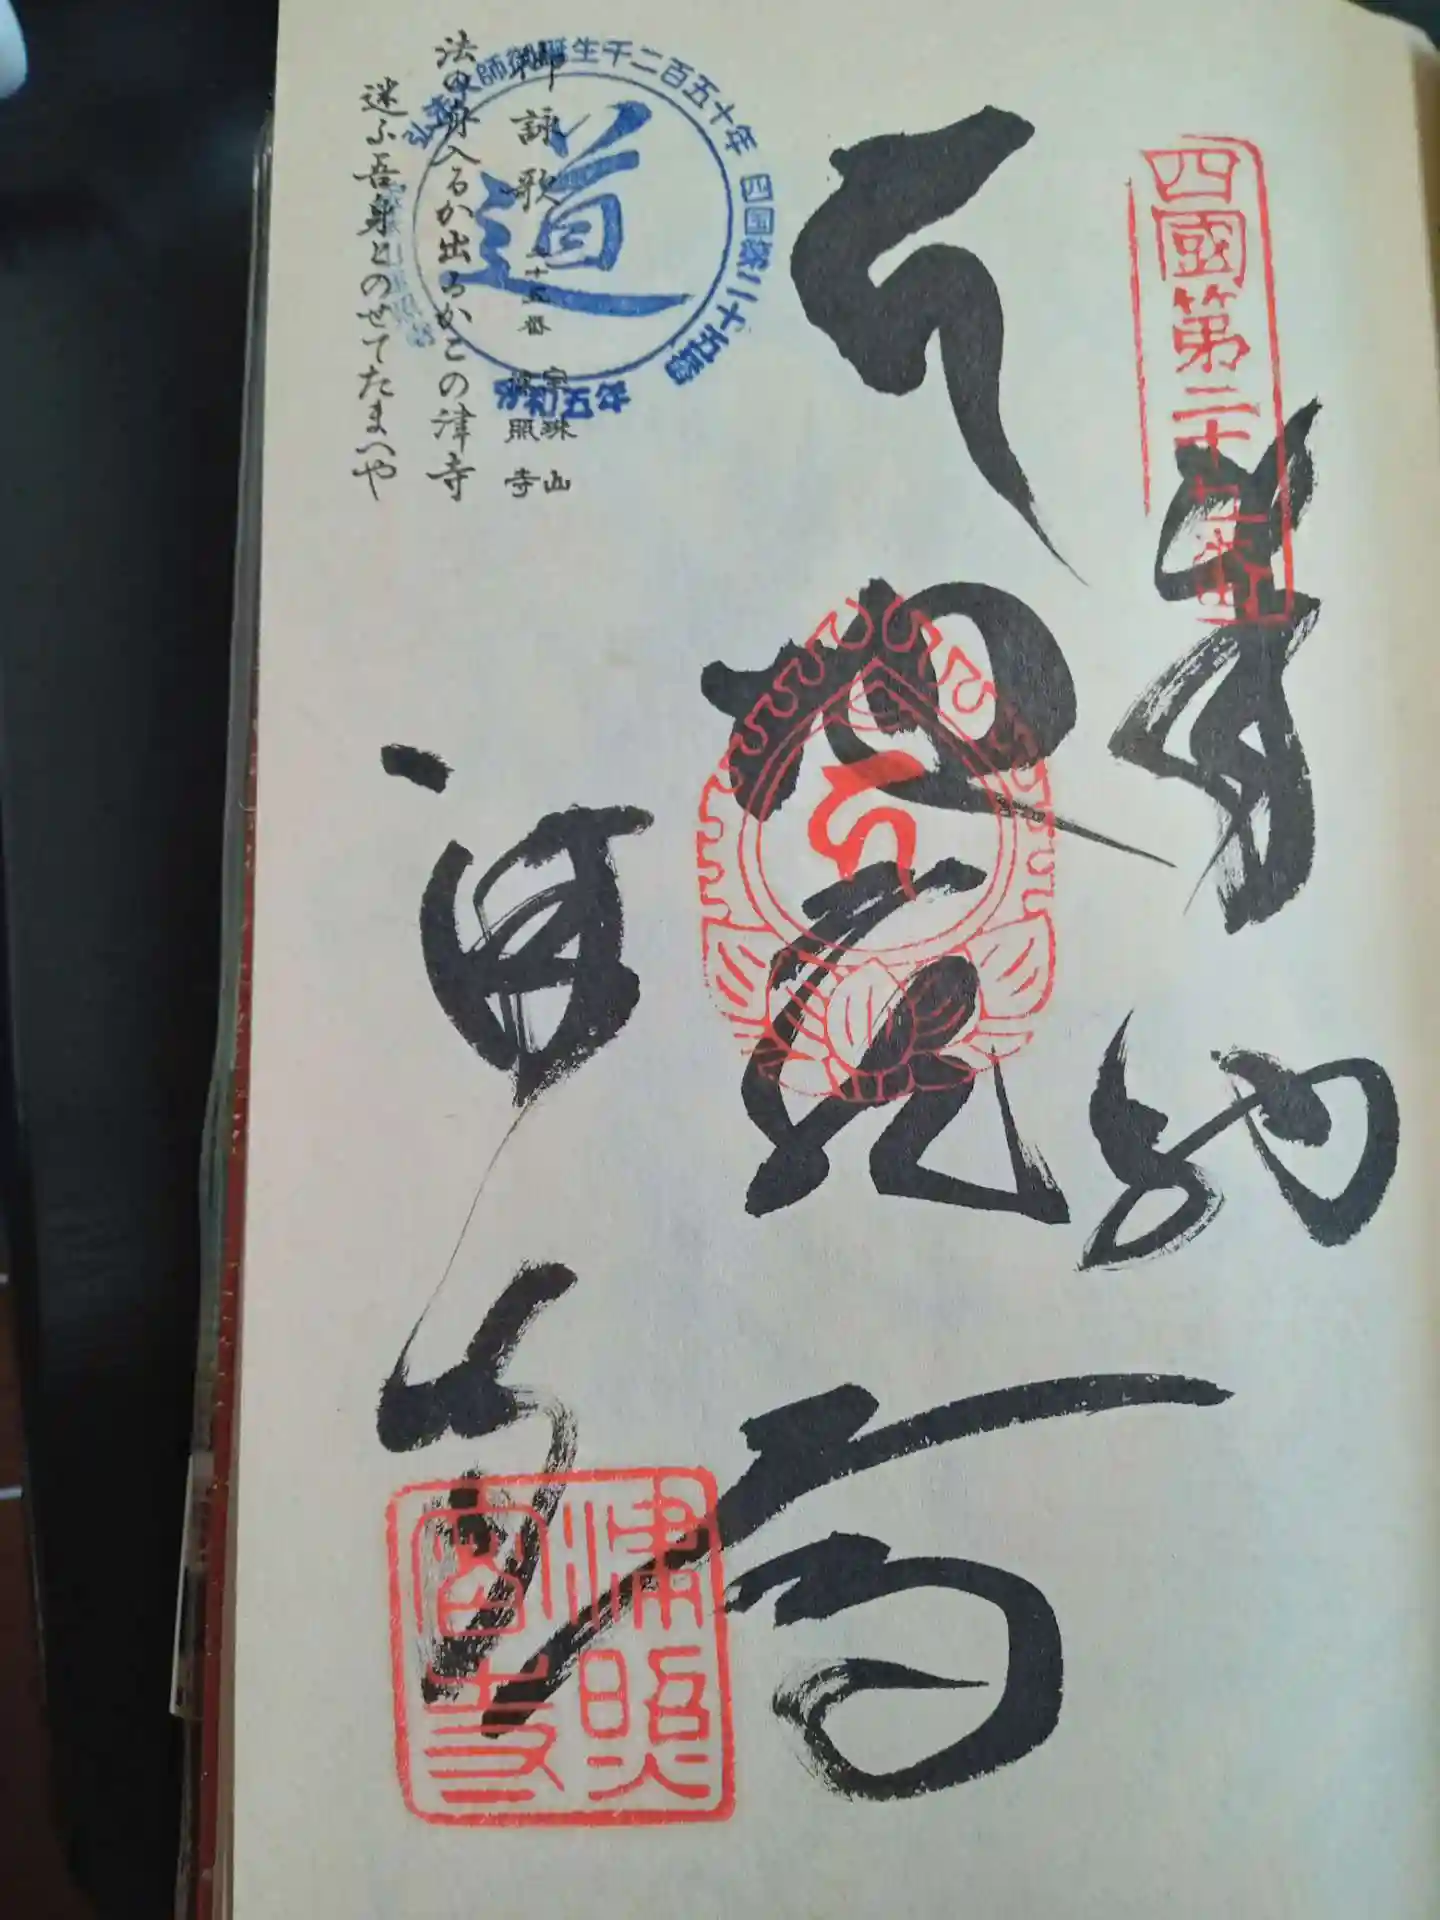 四國第二十五番
奉納
地蔵尊
津寺
津照寺
弘法大師御誕生千二百五十年 四国第二十五番
令和五年
道
御詠歌
二十五番 宝珠山
津照寺
法の舟入るか出るかこの津寺
迷ふ吾身とのせてたまへや